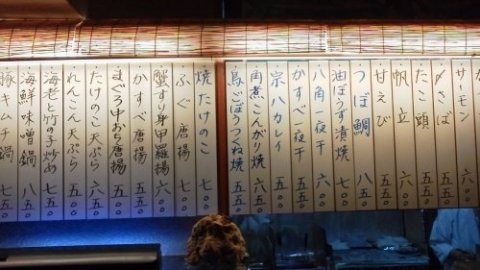 サーモン
〆さば
たこ頭 五五〇
帆立 六〇〇
甘えび 五五〇
つぼ鯛 八五〇
油ぼうず漬焼
かすべ一夜干
八角一夜干
宗八カレイ
角煮こんがり焼
鳥ごぼうつくね焼 五五〇
焼たけのこ 七〇〇
ふぐ唐揚 七〇〇
蟹すり身甲羅揚 六〇〇
かすべ唐揚 五五〇
まぐろ中おち唐揚 五五〇
たけのこ天ぷら 六五〇
れんこん天ぷら 五五〇
海老と竹の子炒め 七五〇
海鮮味噌鍋 八五〇
豚キムチ鍋 七五〇